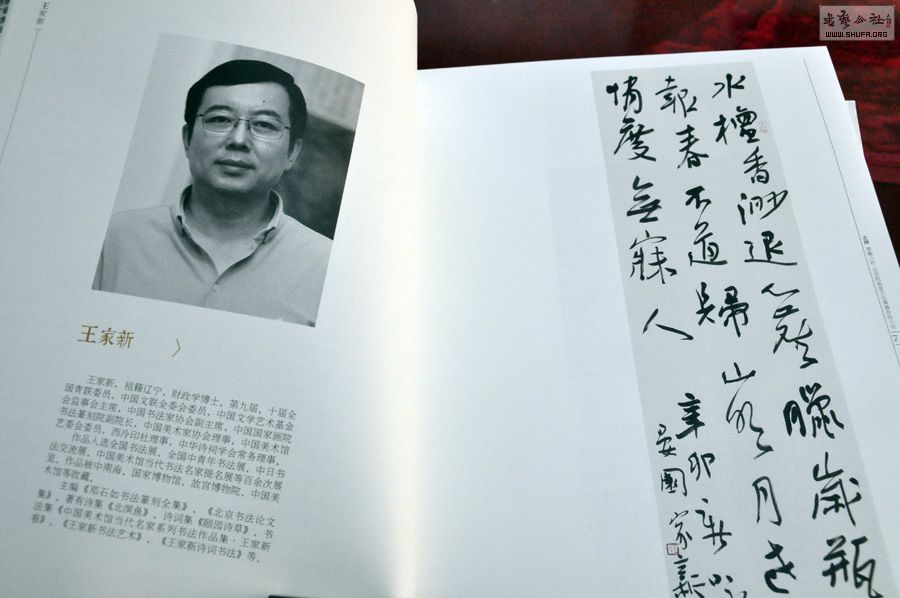 王家新
书艺公社
WWW.SHUFA.ORG
王家新
王家新，祖籍辽宁，财政学博士。第九届、十届全
国青联委员，中国文联全委会委员，中国文学艺术基金
会监事会主席，中国书法家协会副主席，中国国家画院
书法篆刻院副院长，中国美术家协会理事，中国美术馆
艺委会委员，西泠印社理事，中华诗词学会常务理事。
作品入选全国书法展、全国中青年书法展、中日书
法交流展、中国美术馆当代书法名家提名展等百余次展
览。作品被中南海、国家博物馆、故宫博物院、中国美
术馆等收藏。
主编《邓石如书法篆刻全集》、《北京书法论文
集》，著有诗集《北溟鱼》、诗词集《颐园诗草》、书
法集《中国美术馆当代名家系列书法作品集·王家新
卷》、《王家新书法艺术》、《王家新诗词书法》等。
水檀香渺退 臘歲瓶
報春不道歸山 月
情度無寐人
辛卯 家新